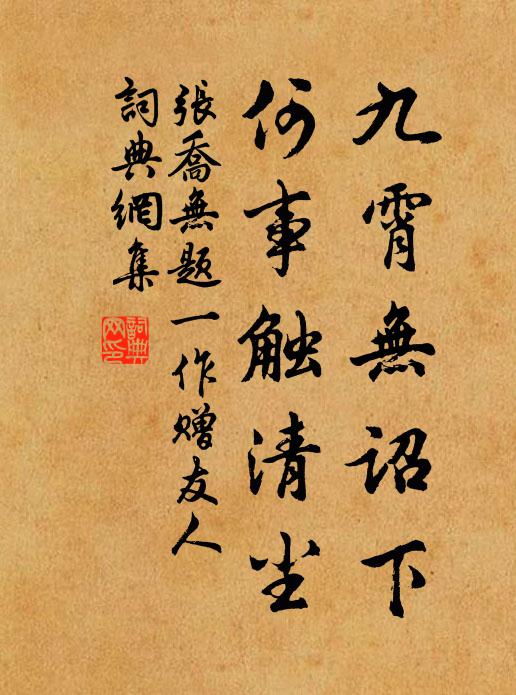 九霄無詔下
何事触清尘
張喬無題一作赠友人
詞典網集
詞典网印